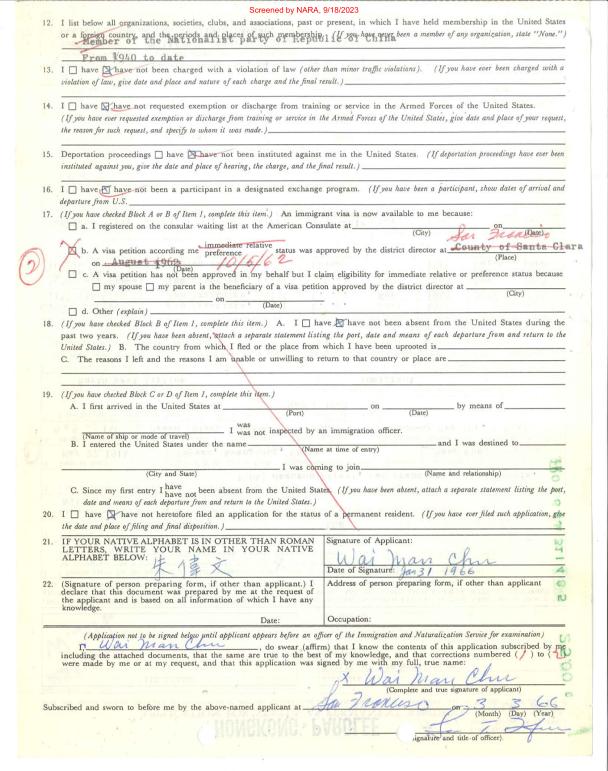 Screened by NARA, 9/18/2023
12. I list below all organizations, societies, clubs, and associations, past or present, in which I have held membership in the United States
or a foreign country, and the periods and places of such membership. (If you have never been a member of any organization, state "None.")
Member of the Nationalist party of Republic of China
From 1940 to date
13. I ☐ have ☒ have not been charged with a violation of law (other than minor traffic violations). (If you have ever been charged with a
violation of law, give date and place and nature of each charge and the final result.)
14. I ☐ have ☒ have not requested exemption or discharge from training or service in the Armed Forces of the United States.
(If you have ever requested exemption or discharge from training or service in the Armed Forces of the United States, give date and place of your request,
the reason for such request, and specify to whom it was made.)
15. Deportation proceedings ☐ have ☒ have not been instituted against me in the United States. (If deportation proceedings have ever been
instituted against you, give the date and place of hearing, the charge, and the final result.)
16. I ☐ have ☒ have not been a participant in a designated exchange program. (If you have been a participant, show dates of arrival and
departure from U.S.
17. (If you have checked Block A or B of Item 1, complete this item.) An immigrant visa is now available to me because:
☐ a. I registered on the consular waiting list at the American Consulate at on
(City) (Date)
San Francisco
☒ b. A visa petition according me immediate relative preference status was approved by the district director at County of Santa Clara
on August 1962 10/5/62
(Date) (Place)
2
☐ c. A visa petition has not been approved in my behalf but I claim eligibility for immediate relative or preference status because
☐ my spouse ☐ my parent is the beneficiary of a visa petition approved by the district director at
(City)
on
(Date)
☐ d. Other (explain)
18. (If you have checked Block B of Item 1, complete this item.) A. I ☐ have ☒ have not been absent from the United States during the
past two years. (If you have been absent, attach a separate statement listing the port, date and means of each departure from and return to the
United States.) B. The country from which I fled or the place from which I have been uprooted is
C. The reasons I left and the reasons I am unable or unwilling to return to that country or place are
19. (If you have checked Block C or D of Item 1, complete this item.)
A. I first arrived in the United States at on by means of
(Port) (Date)
I was was not inspected by an immigration officer.
(Name of ship or mode of travel)
B. I entered the United States under the name and I was destined to
(Name at time of entry)
I was coming to join
(City and State) (Name and relationship)
C. Since my first entry I have have not been absent from the United States. (If you have been absent, attach a separate statement listing the port,
date and means of each departure from and return to the United States.)
20. I ☐ have ☒ have not heretofore filed an application for the status of a permanent resident. (If you have ever filed such application, give
the date and place of filing and final disposition.)
21. IF YOUR NATIVE ALPHABET IS IN OTHER THAN ROMAN
LETTERS, WRITE YOUR NAME IN YOUR NATIVE
ALPHABET BELOW:
朱偉文
Signature of Applicant:
Wai Man Chu
Date of Signature: Jan 31 1966
22. (Signature of person preparing form, if other than applicant.) I
declare that this document was prepared by me at the request of
the applicant and is based on all information of which I have any
knowledge.
Date:
Address of person preparing form, if other than applicant
Occupation:
(Application not to be signed below until applicant appears before an officer of the Immigration and Naturalization Service for examination)
I, Wai Man Chu, do swear (affirm) that I know the contents of this application subscribed by me
including the attached documents, that the same are true to the best of my knowledge, and that corrections numbered (1) to ( )
were made by me or at my request, and that this application was signed by me with my full, true name:
X Wai Man Chu
(Complete and true signature of applicant)
Subscribed and sworn to before me by the above-named applicant at San Francisco on 3 3 66
(Month) (Day) (Year)
(signature and title of officer)